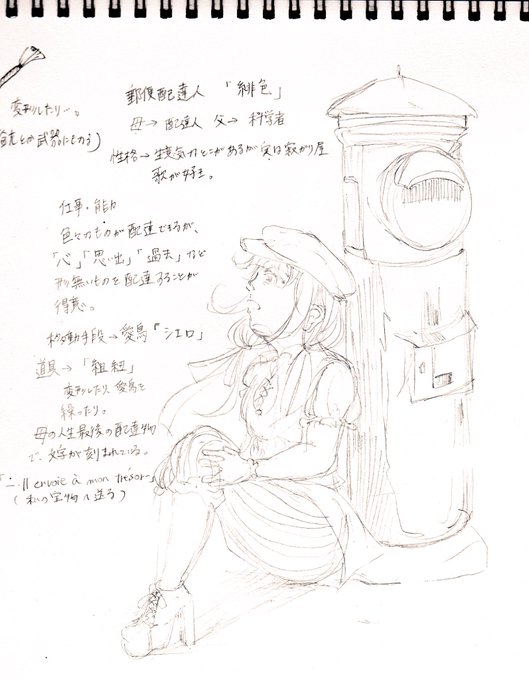 郵便配達人 「緋色」
母→ 配達人 父→ 科学者
性格→生意気なとこがあるが実は寂がり屋
歌が好き。
変形したり…。
とか武器にもなる)
仕事・能力
色々なものが配達できるが、
「心」「思い出」「過去」など
形無いものを配達することが
得意。
移動手段→愛鳥『シエロ』
道具→「組紐」
変形したり、愛鳥を
操ったり。
母の人生最後の配達物
で、文字が刻まれている。
Il envoie à mon trésor
(私の宝物へ送る)